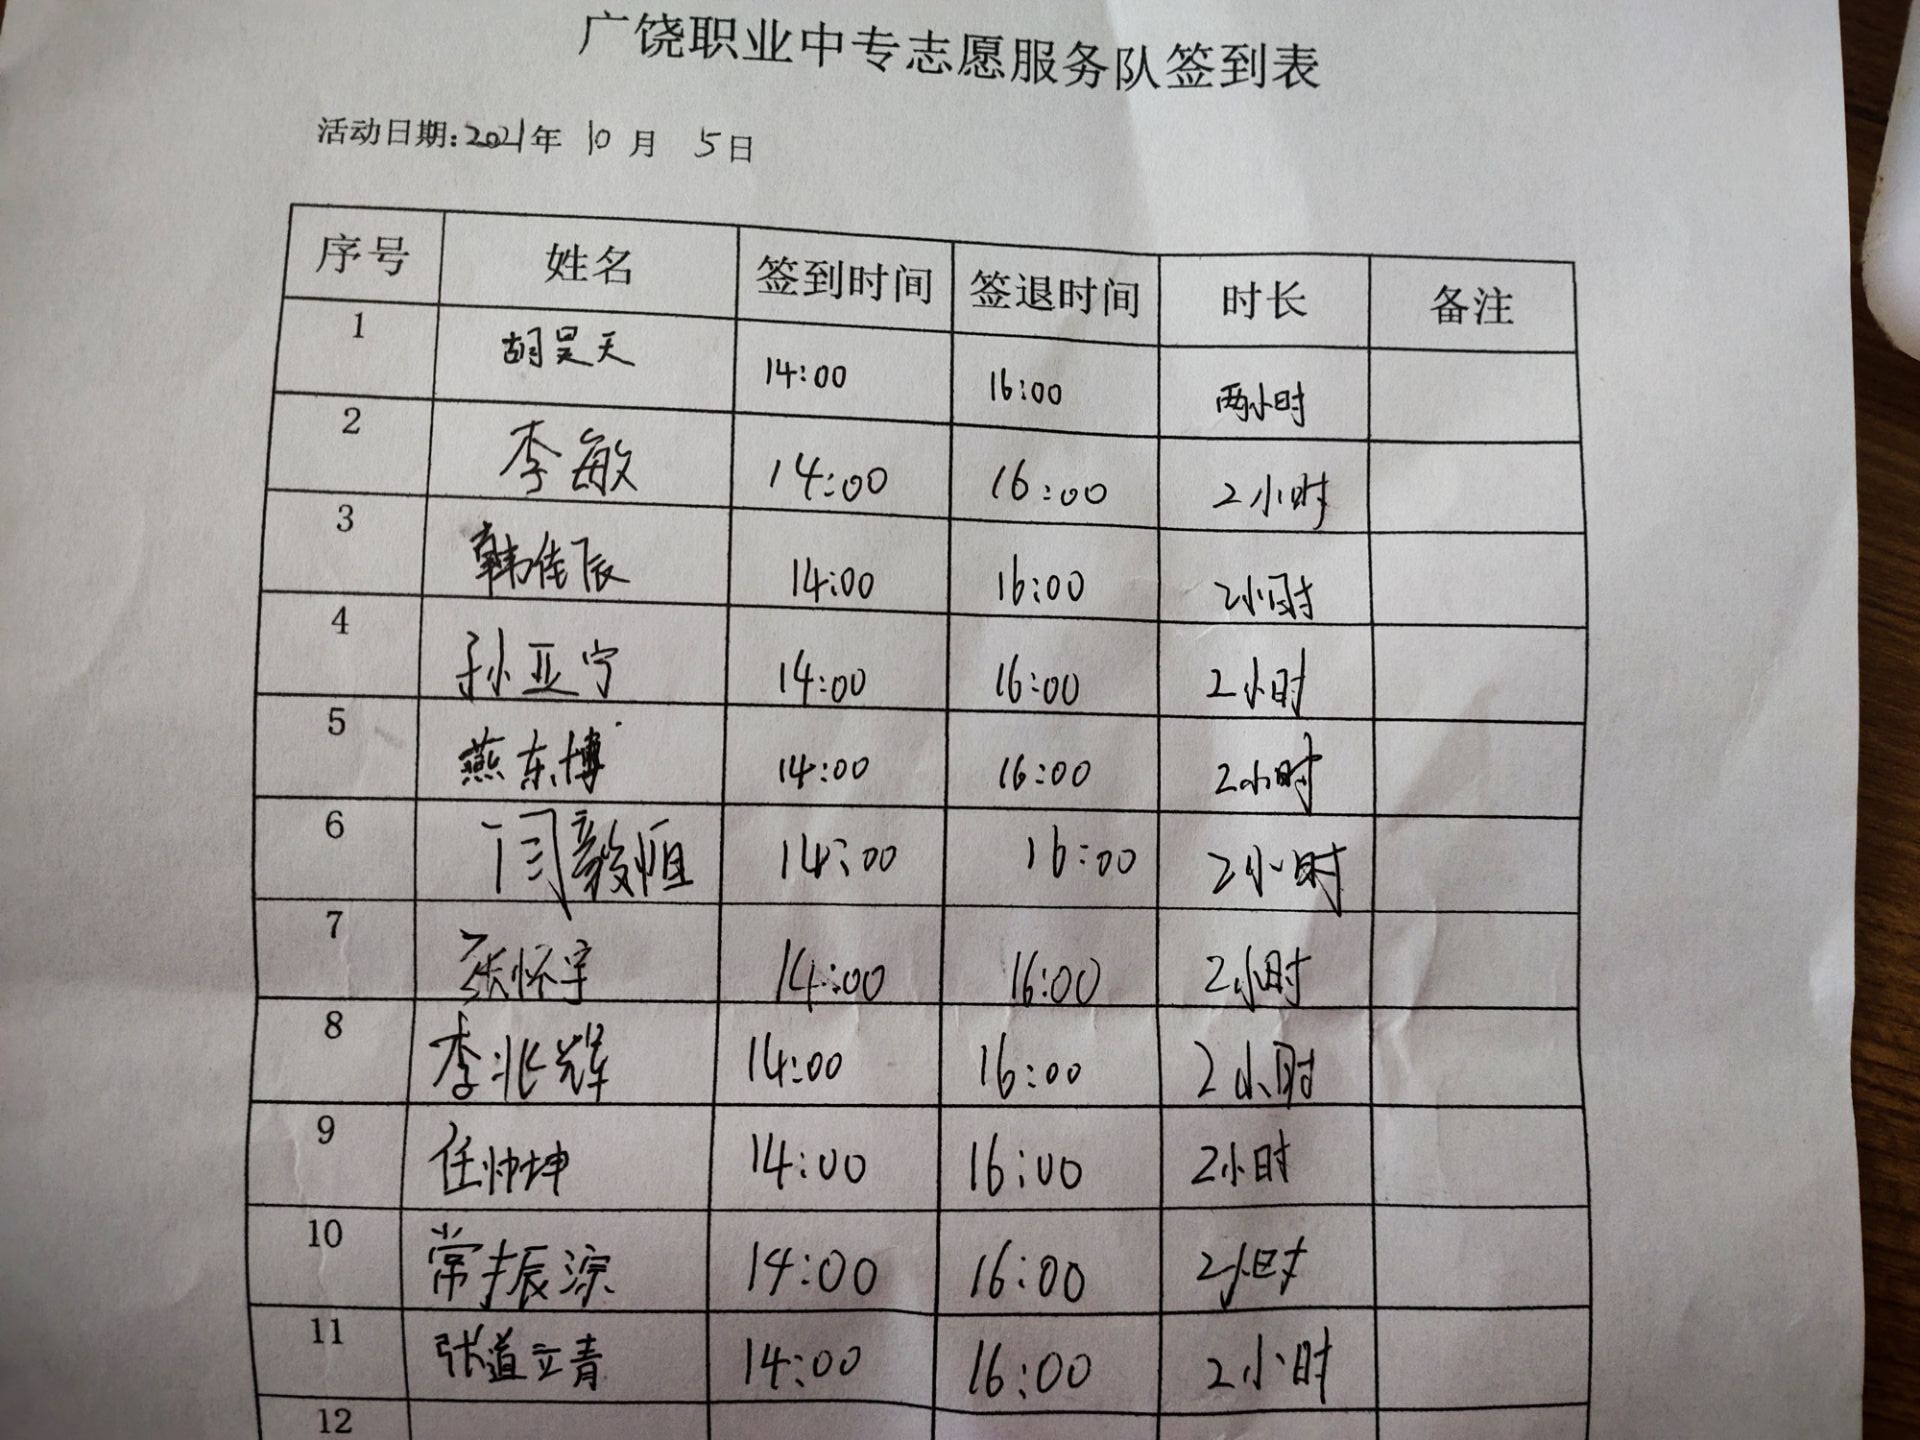 广饶职业中专志愿服务队签到表
活动日期:2021年 10 月 5日
序号 姓名 签到时间 签退时间 时长 备注
1 胡昊天 14:00 16:00 两小时
2 李敏 14:00 16:00 2小时
3 韩佳辰 14:00 16:00 2小时
4 孙亚宁 14:00 16:00 2小时
5 燕东博 14:00 16:00 2小时
6 闫毅恒 14:00 16:00 2小时
7 张怀宇 14:00 16:00 2小时
8 李兆辉 14:00 16:00 2小时
9 任帅坤 14:00 16:00 2小时
10 常振淙 14:00 16:00 2小时
11 张道靖 14:00 16:00 2小时
12